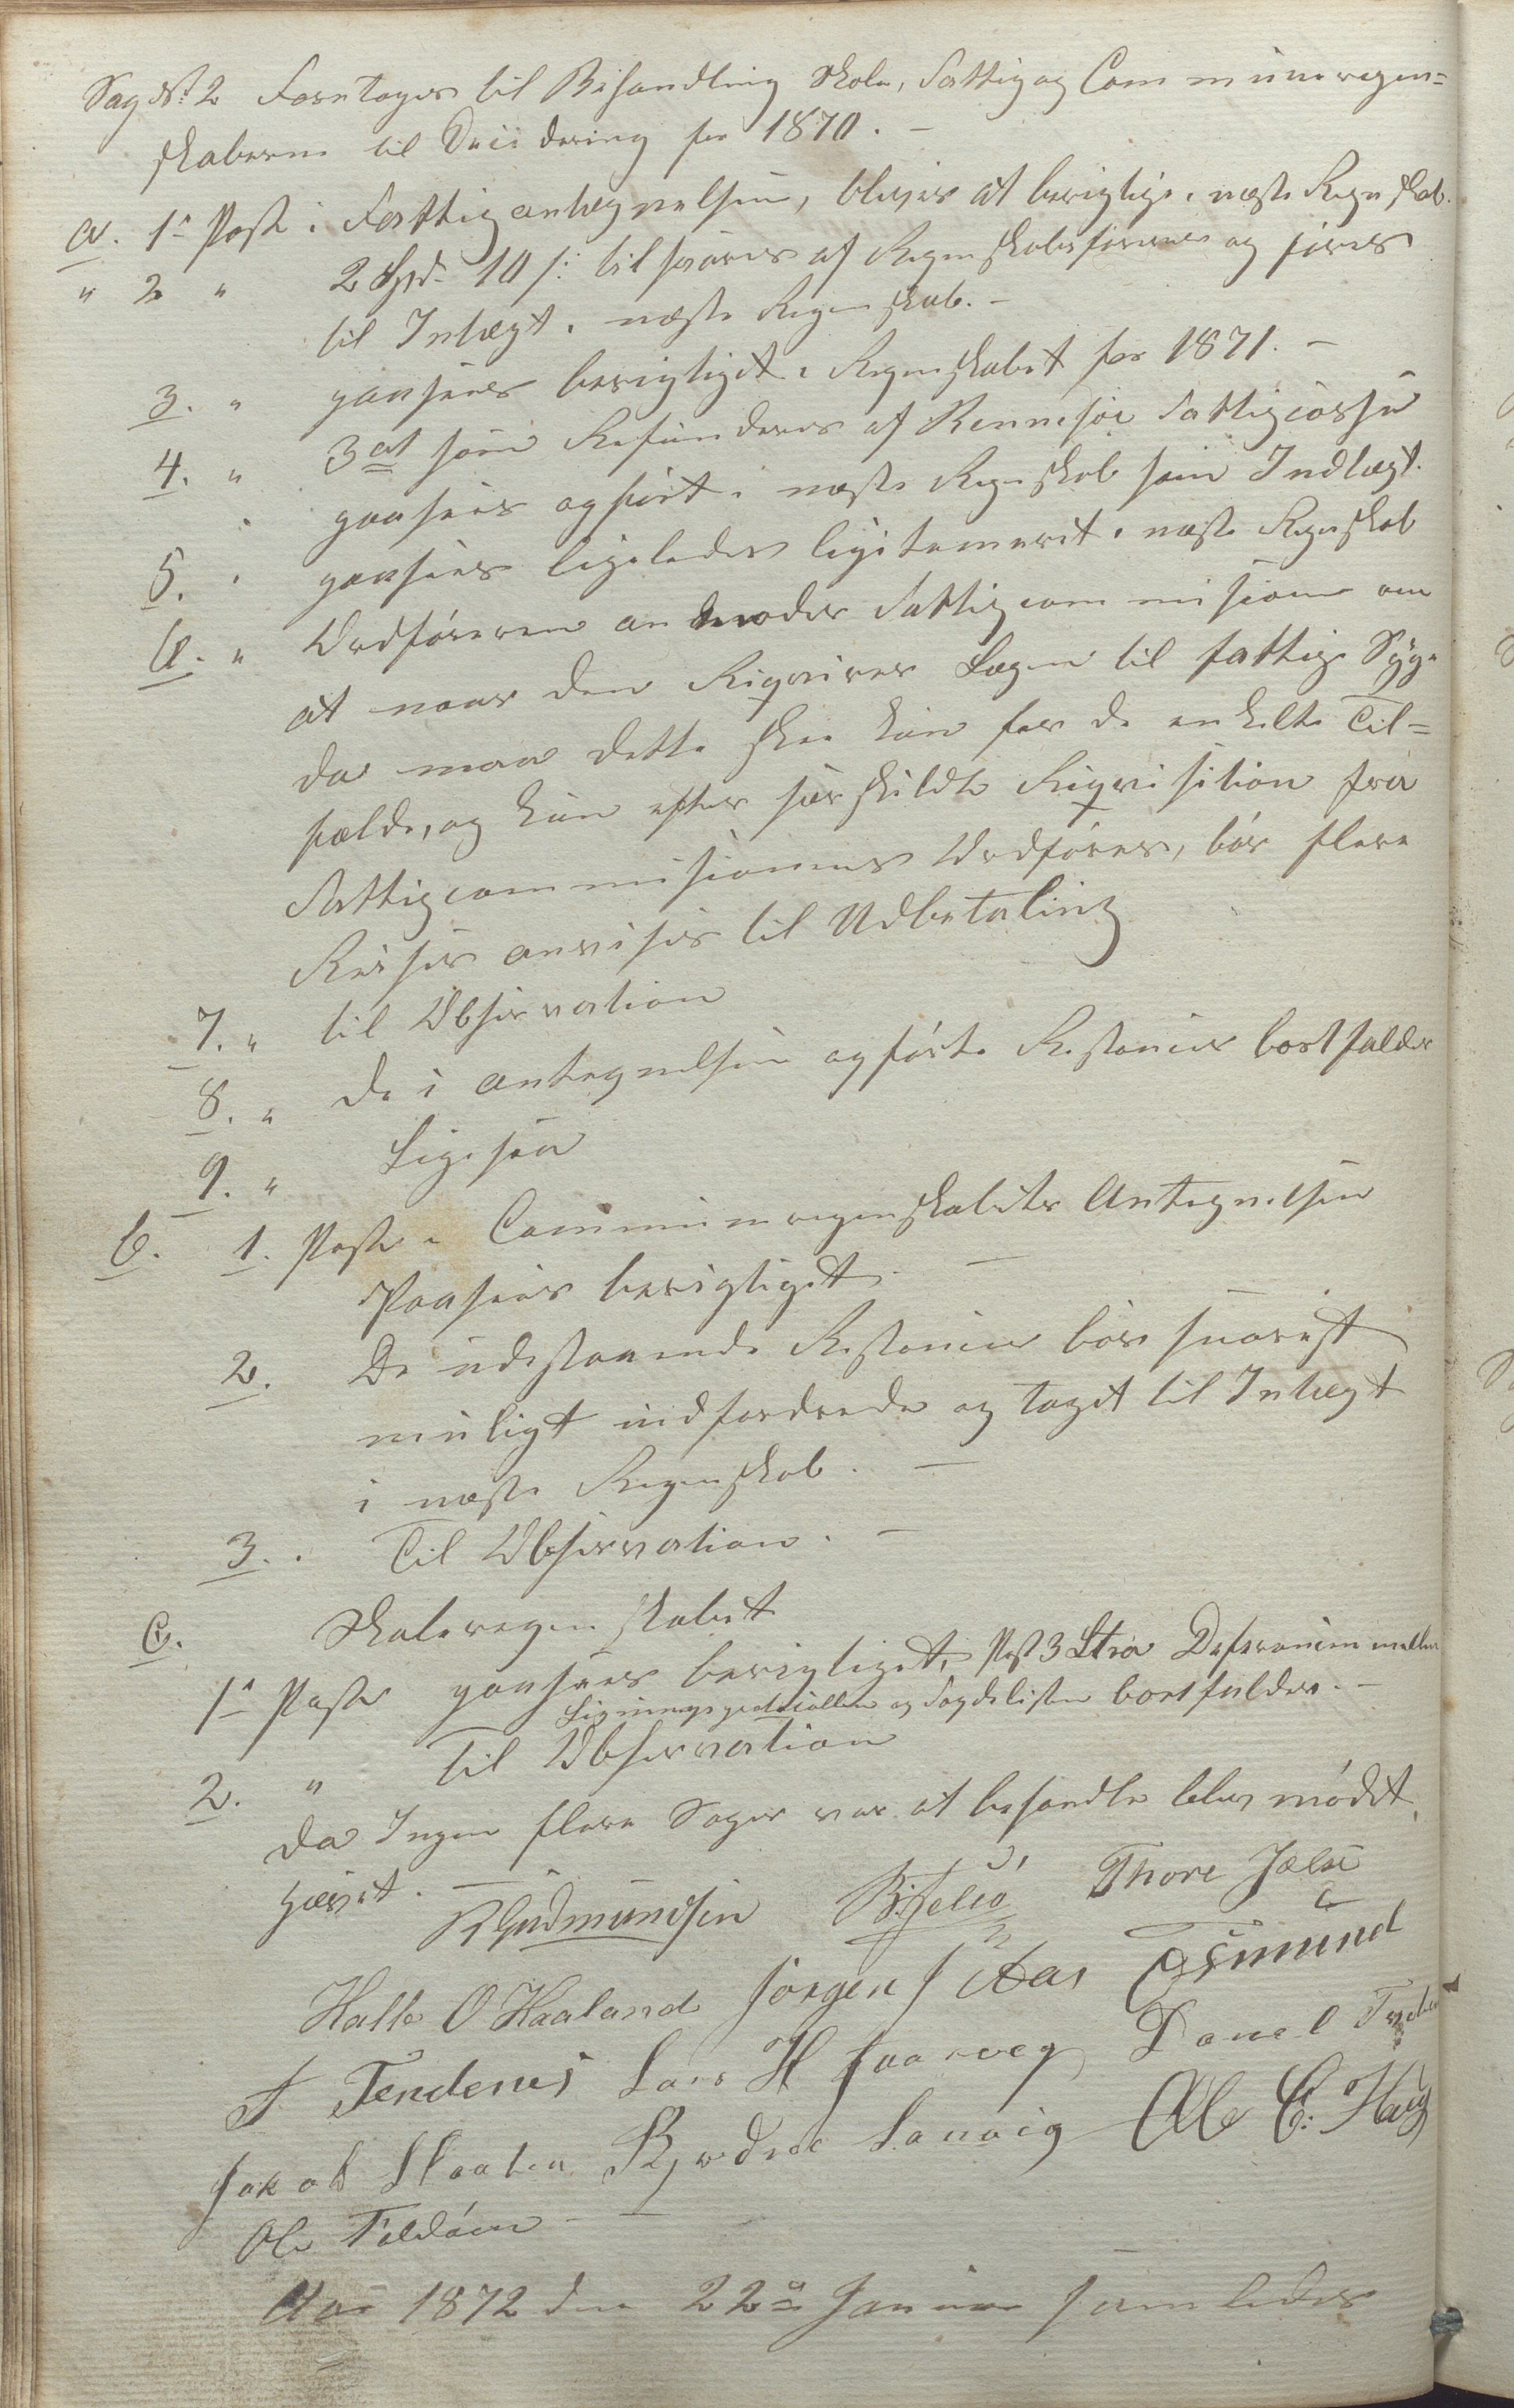 Sag No 2 Foretages til Behandling Skole, Fattig og Communeregen=
skaberne til Deciidering for 1870. –
a. 1ste Post i Fattigantegnelsen, blives at berigtige i næste Regnskab.
" 2 " 2 Spd. 10 s: tilsvares af Regenskabsføreren og føres
til Intægt i næste Regenskab. –
3. " paasees berigtiget i Regenskabet for 1871. –
4. " som Refunderes af Rennesøe Fattigcasse
paasees opført i næste Regnskab som Indtægt.
5. " paasees ligeledes legitemeret i næste Regnskab
6. " Ordføreren anmoder Fattigcommisionen om
at naar den Reqvirer Lægen til fattige Syge
da maa dette skee kun for de enkelte Til=
fælde, og kun efter særskildte Reqvisition fra
Fattigcommisionens Ordfører, bør flere
Reiser anvises til Udbetaling
7. " til Observation
8. " de i antegnelsen opførte Restancer bortfalder
9. " Ligesaa
b. 1. Post i Communeregenskabets Antegnelsen
Paasees berigtiget. –
2. De udestaaende Restancer bør snarest
muligt indfordrede og taget til Intægt
i næste Regenskab. –
3. . Til Observation. –
c. Skoleregenskabet
1ste Post paasees berigtiget, Post 3 Ltra Deferencen mellem
Ligningsprotocollen og Fogdelisten bortfalder. –
2. " til Observation
Da Ingen flere Sager var at behandle blev mødet
hævet. –
R Gudmundsen B: Thore Jelse
Halle O Haaland Jørgen J Aas Osmund
T Tendenes Lars H Faarveg Daniel
Jakob Slaaten Lanvig Ole C: Haug
Ole Feldøen –
Aar 1872 den 22de Januar samledes